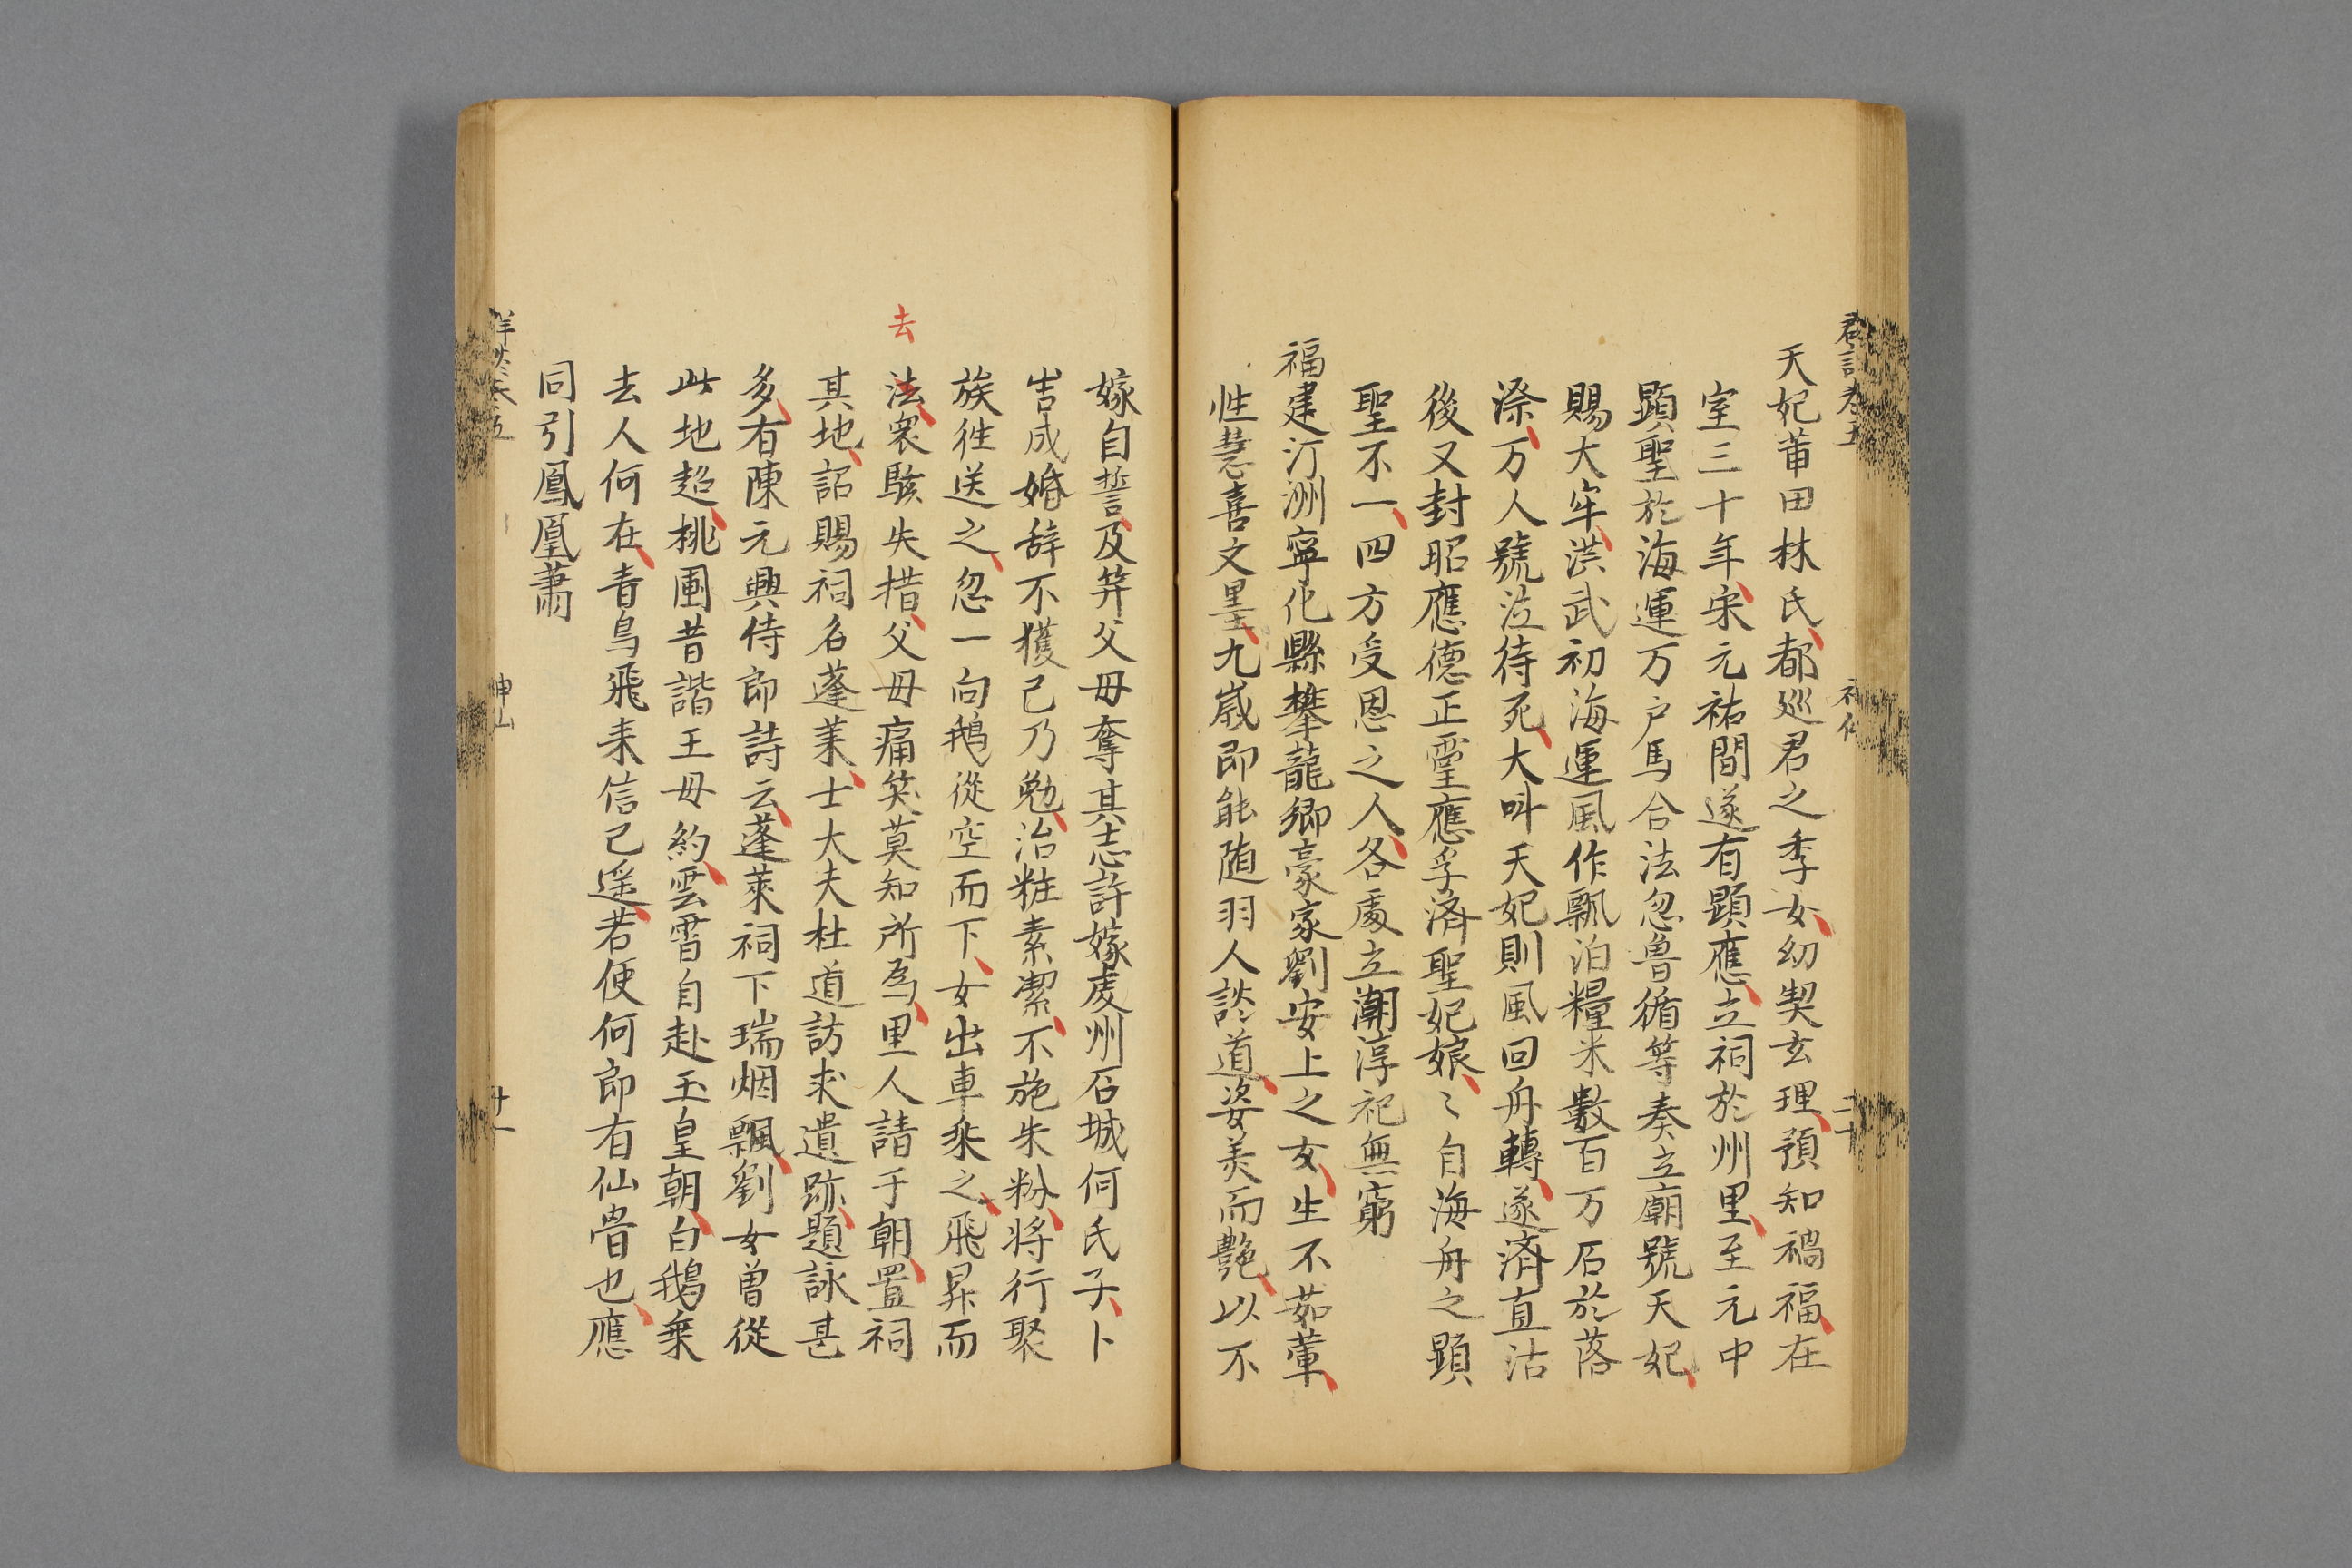 天妃莆田林氏都巡君之季女幼契玄理預知禍福在
室三十年宋元祐間遂有顕應立祠於州里至元中
顕聖於海運万户馬合法忽魯循等奏立廟號天妃
賜大牢洪武初海運風作飄泊糧米数百万石於落
漈万人號泣待死大呌天妃則風回舟轉遂済直沽
後又封昭應德正霊應孚済聖妃娘〻自海舟之顕
聖不一四方受恩之人各處立潮淳祀無窮
福建汀洲寧化縣攀龍鄉豪家劉安上之女生不茹葷
性慧喜文墨九歲即能随羽人談道姿美而艶以不
嫁自誓及笄父毋奪其志許嫁虔州石城何氏子卜
吉成婚辞不獲已乃勉治粧素潔不施朱粉将行聚
族徃送之忽一向鵝從空而下女出車乘之飛昇而
去
法衆駭失措父毋痛哭莫知所為里人請于朝置祠
其地詔賜祠名蓬莱士大夫杜道訪求遺跡題詠甚
多有陳元興侍郎詩云蓬萊祠下瑞烟飄劉女曽從
此地超桃圃昔諧王毋約雲霄自赴玉皇朝白鵝乗
去人何在青鳥飛来信已遥若便何郎有仙骨也應
同引鳳凰蕭